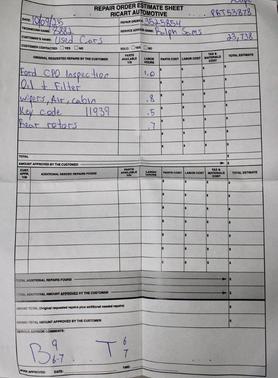 REPAIR ORDER ESTIMATE SHEET
RICART AUTOMOTIVE
DATE: 10/09/25
REPAIR ORDER#: 3525854
PBT53878
TECHNICIAN NAME: 7382
SERVICE ADVISOR NAME: Ralph Sams
CUSTOMER'S NAME: Used Cars
23,738
CUSTOMER CONTACTED: YES NO
SOLD: YES NO
ORIGINAL REQUESTED REPAIRS BY THE CUSTOMER PARTS AVAILABLE Y/N LABOR HOURS PARTS COST LABOR COST TAX & MATERIALS COST TOTAL ESTIMATE
Ford CPO Inspection 1.0
Oil & Filter
wipers, Air, cabin .8
Key code 11939 .5
Rear rotors .7
TOTAL
AMOUNT APPROVED BY THE CUSTOMER
CUST. APPR. Y/N ADDITIONAL NEEDED REPAIRS FOUND PARTS AVAILABLE Y/N LABOR HOURS PARTS COST LABOR COST TAX & MATERIALS COST TOTAL ESTIMATE
TOTAL ADDITIONAL REPAIRS FOUND
TOTAL ADDITIONAL AMOUNT APPROVED BY THE CUSTOMER
GRAND TOTAL (Original requested repairs plus additional needed repairs)
GRAND TOTAL AMOUNT APPROVED BY THE CUSTOMER
SERVICE ADVISOR COMMENTS:
B 9 6-7 T 6 7
WORK APPROVED DATE: TIME: